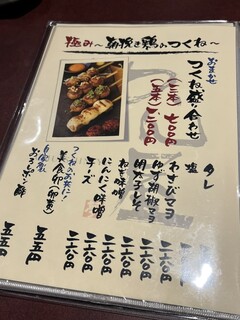 極み~朝挽き鶏のつくね~
おまかせ
つくね盛り合わせ
(三本) 七〇〇円
(五本) 一二〇〇円
タレ 二六〇円
塩 二六〇円
わさびマヨ 二六〇円
ゆず胡椒マヨ 二六〇円
明太子マヨ 二六〇円
ねぎ味噌 二六〇円
にんにく味噌 二六〇円
チーズ 二六〇円
つくねのお供に!
美食卵(卵黄) 五五円
自家製
おろしポン酢 五五円